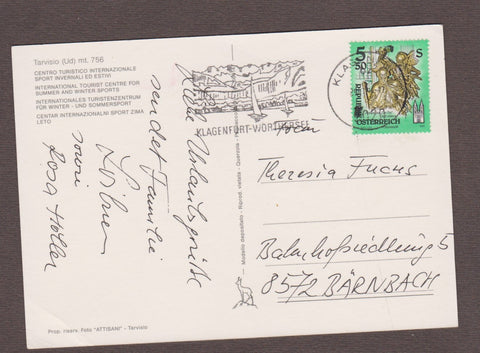 Tarvisio (Ud) mt. 756
CENTRO TURISTICO INTERNAZIONALE
SPORT INVERNALI ED ESTIVI
INTERNATIONAL TOURIST CENTRE FOR
SUMMER AND WINTER SPORTS
INTERNATIONALES TURISTENZENTRUM
FÜR WINTER - UND SOMMERSPORT
CENTAR INTERNAZIONALNI SPORT ZIMA
LETO
Urlaubsgrüße
sendet Familie
Rosa Holler
Prop. riserv. Foto "ATTISANI" - Tarvisio
Modello depositato - Riprod. vietata
KLAGENFURT-WÖRTHERSEE
KLAG
5
50
S
REPUBLIK
ÖSTERREICH
Frau
Theresia Fuchs
Bahnhofsiedlung 5
8572 BÄRNBACH